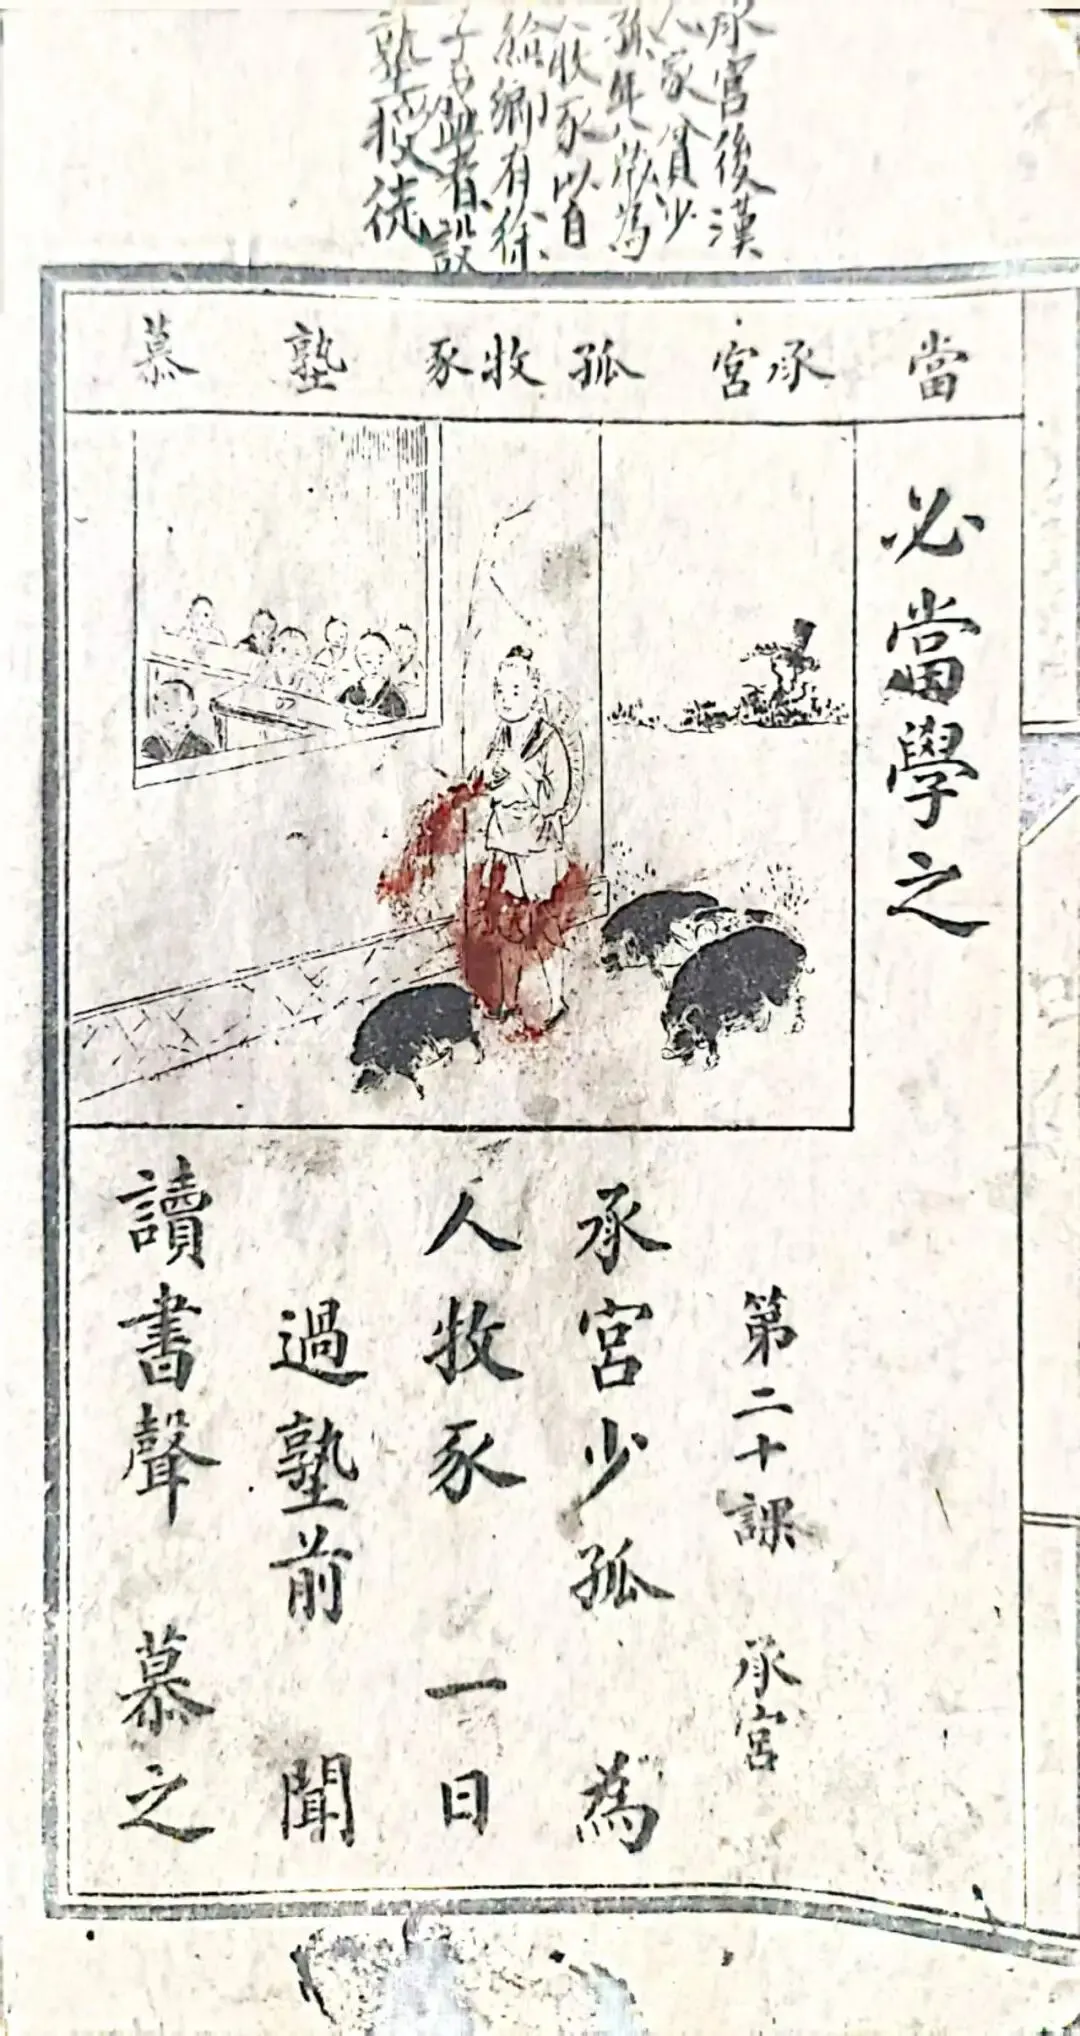 承宮後漢
人家貧少
孤年八歲為
人牧豕以自
給鄉有徐
子盛者設
塾授徒
當 承宮 孤 牧豕 塾 慕
必當學之
第二十課 承宮
承宮少孤 為
人牧豕 一日
過塾前 聞
讀書聲 慕之